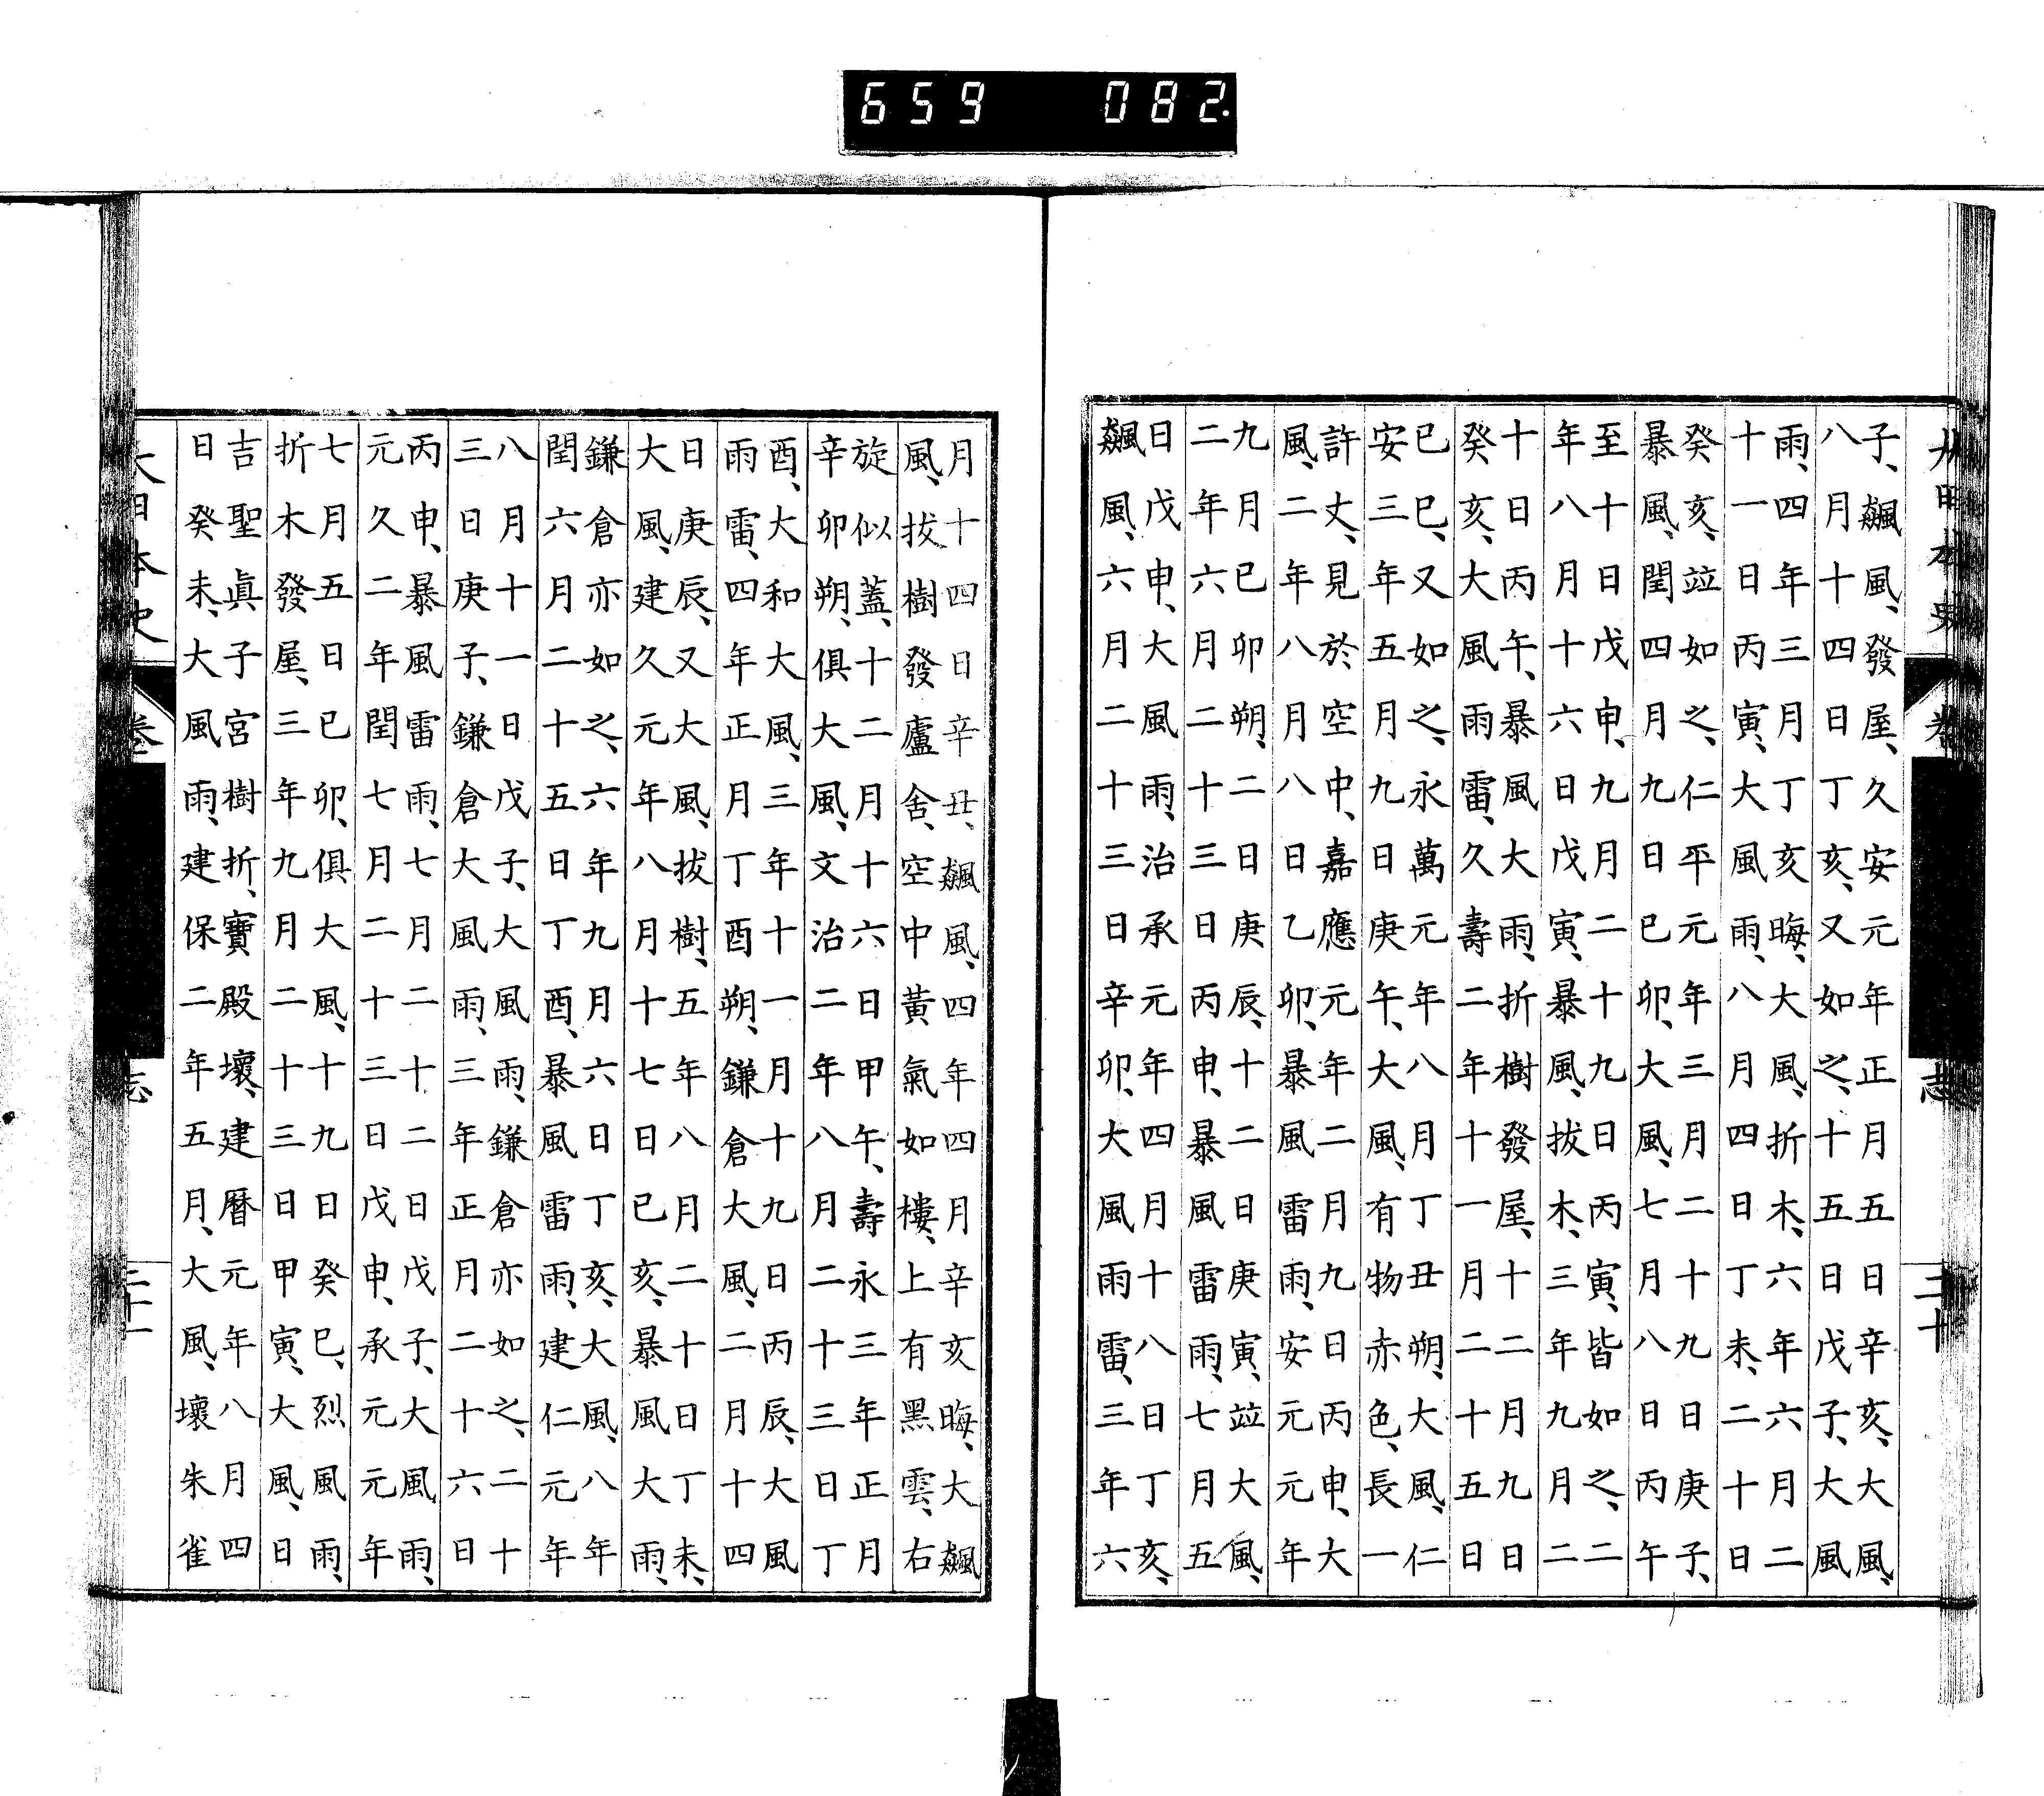 大日本史 卷 志 二十
子、飄風、發屋、久安元年正月五日辛亥、大風、
八月十四日丁亥、又如之、十五日戊子、大風
雨、四年三月丁亥晦、大風、折木、六年六月二
十一日丙寅、大風雨、八月四日丁未、二十日
癸亥、竝如之、仁平元年三月二十九日庚子、
暴風、閏四月九日已卯、大風、七月八日丙午
至十日戊申、九月二十九日丙寅、皆如之、二
年八月十六日戊寅、暴風、拔木、三年九月二
十日丙午、暴風大雨、折樹發屋、十二月九日
癸亥、大風雨雷、久壽二年十一月二十五日
已巳、又如之、永萬元年八月丁丑朔、大風、仁
安三年五月九日庚午、大風、有物赤色、長一
許丈、見於空中、嘉應元年二月九日丙申、大
風、二年八月八日乙卯、暴風雷雨、安元元年
九月已卯朔、二日庚辰、十二日庚寅、竝大風、
二年六月二十三日丙申、暴風雷雨、七月五
日戊申、大風雨、治承元年四月十八日丁亥、
飄風、六月二十三日辛卯、大風雨雷、三年六
月十四日辛丑、飄風、四年四月辛亥晦、大飄
風、拔樹發廬舍、空中黃氣如樓、上有黑雲、右
旋似蓋、十二月十六日甲午、壽永三年正月
辛卯朔、俱大風、文治二年八月二十三日丁
酉、大和大風、三年十一月十九日丙辰、大風
雨雷、四年正月丁酉朔、鎌倉大風、二月十四
日庚辰、又大風、拔樹、五年八月二十日丁未、
大風、建久元年八月十七日已亥、暴風大雨、
鎌倉亦如之、六年九月六日丁亥、大風、八年
閏六月二十五日丁酉、暴風雷雨、建仁元年
八月十一日戊子、大風雨、鎌倉亦如之、二十
三日庚子、鎌倉大風雨、三年正月二十六日
丙申、暴風雷雨、七月二十二日戊子、大風雨、
元久二年閏七月二十三日戊申、承元元年
七月五日已卯、俱大風、十九日癸巳、烈風雨、
折木發屋、三年九月二十三日甲寅、大風、日
吉聖眞子宮樹折、寶殿壞、建曆元年八月四
日癸未、大風雨、建保二年五月、大風、壞朱雀
大日本史 卷 志 二十一
659 082